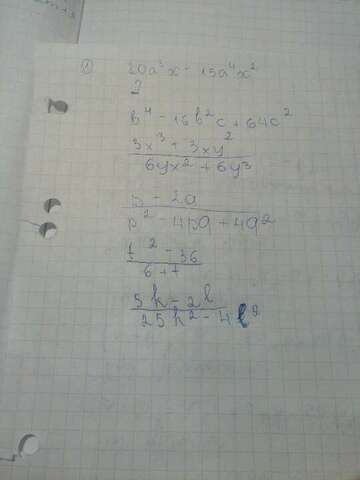 ① 20a³x - 15a⁴x²
2
b⁴ - 16b²c + 64c²
3x³ + 3xy²
6yx² + 6y³
p - 2q
p² - 4pq + 4q²
t² - 36
6 + t
5k - 2l
25k² - 4l²